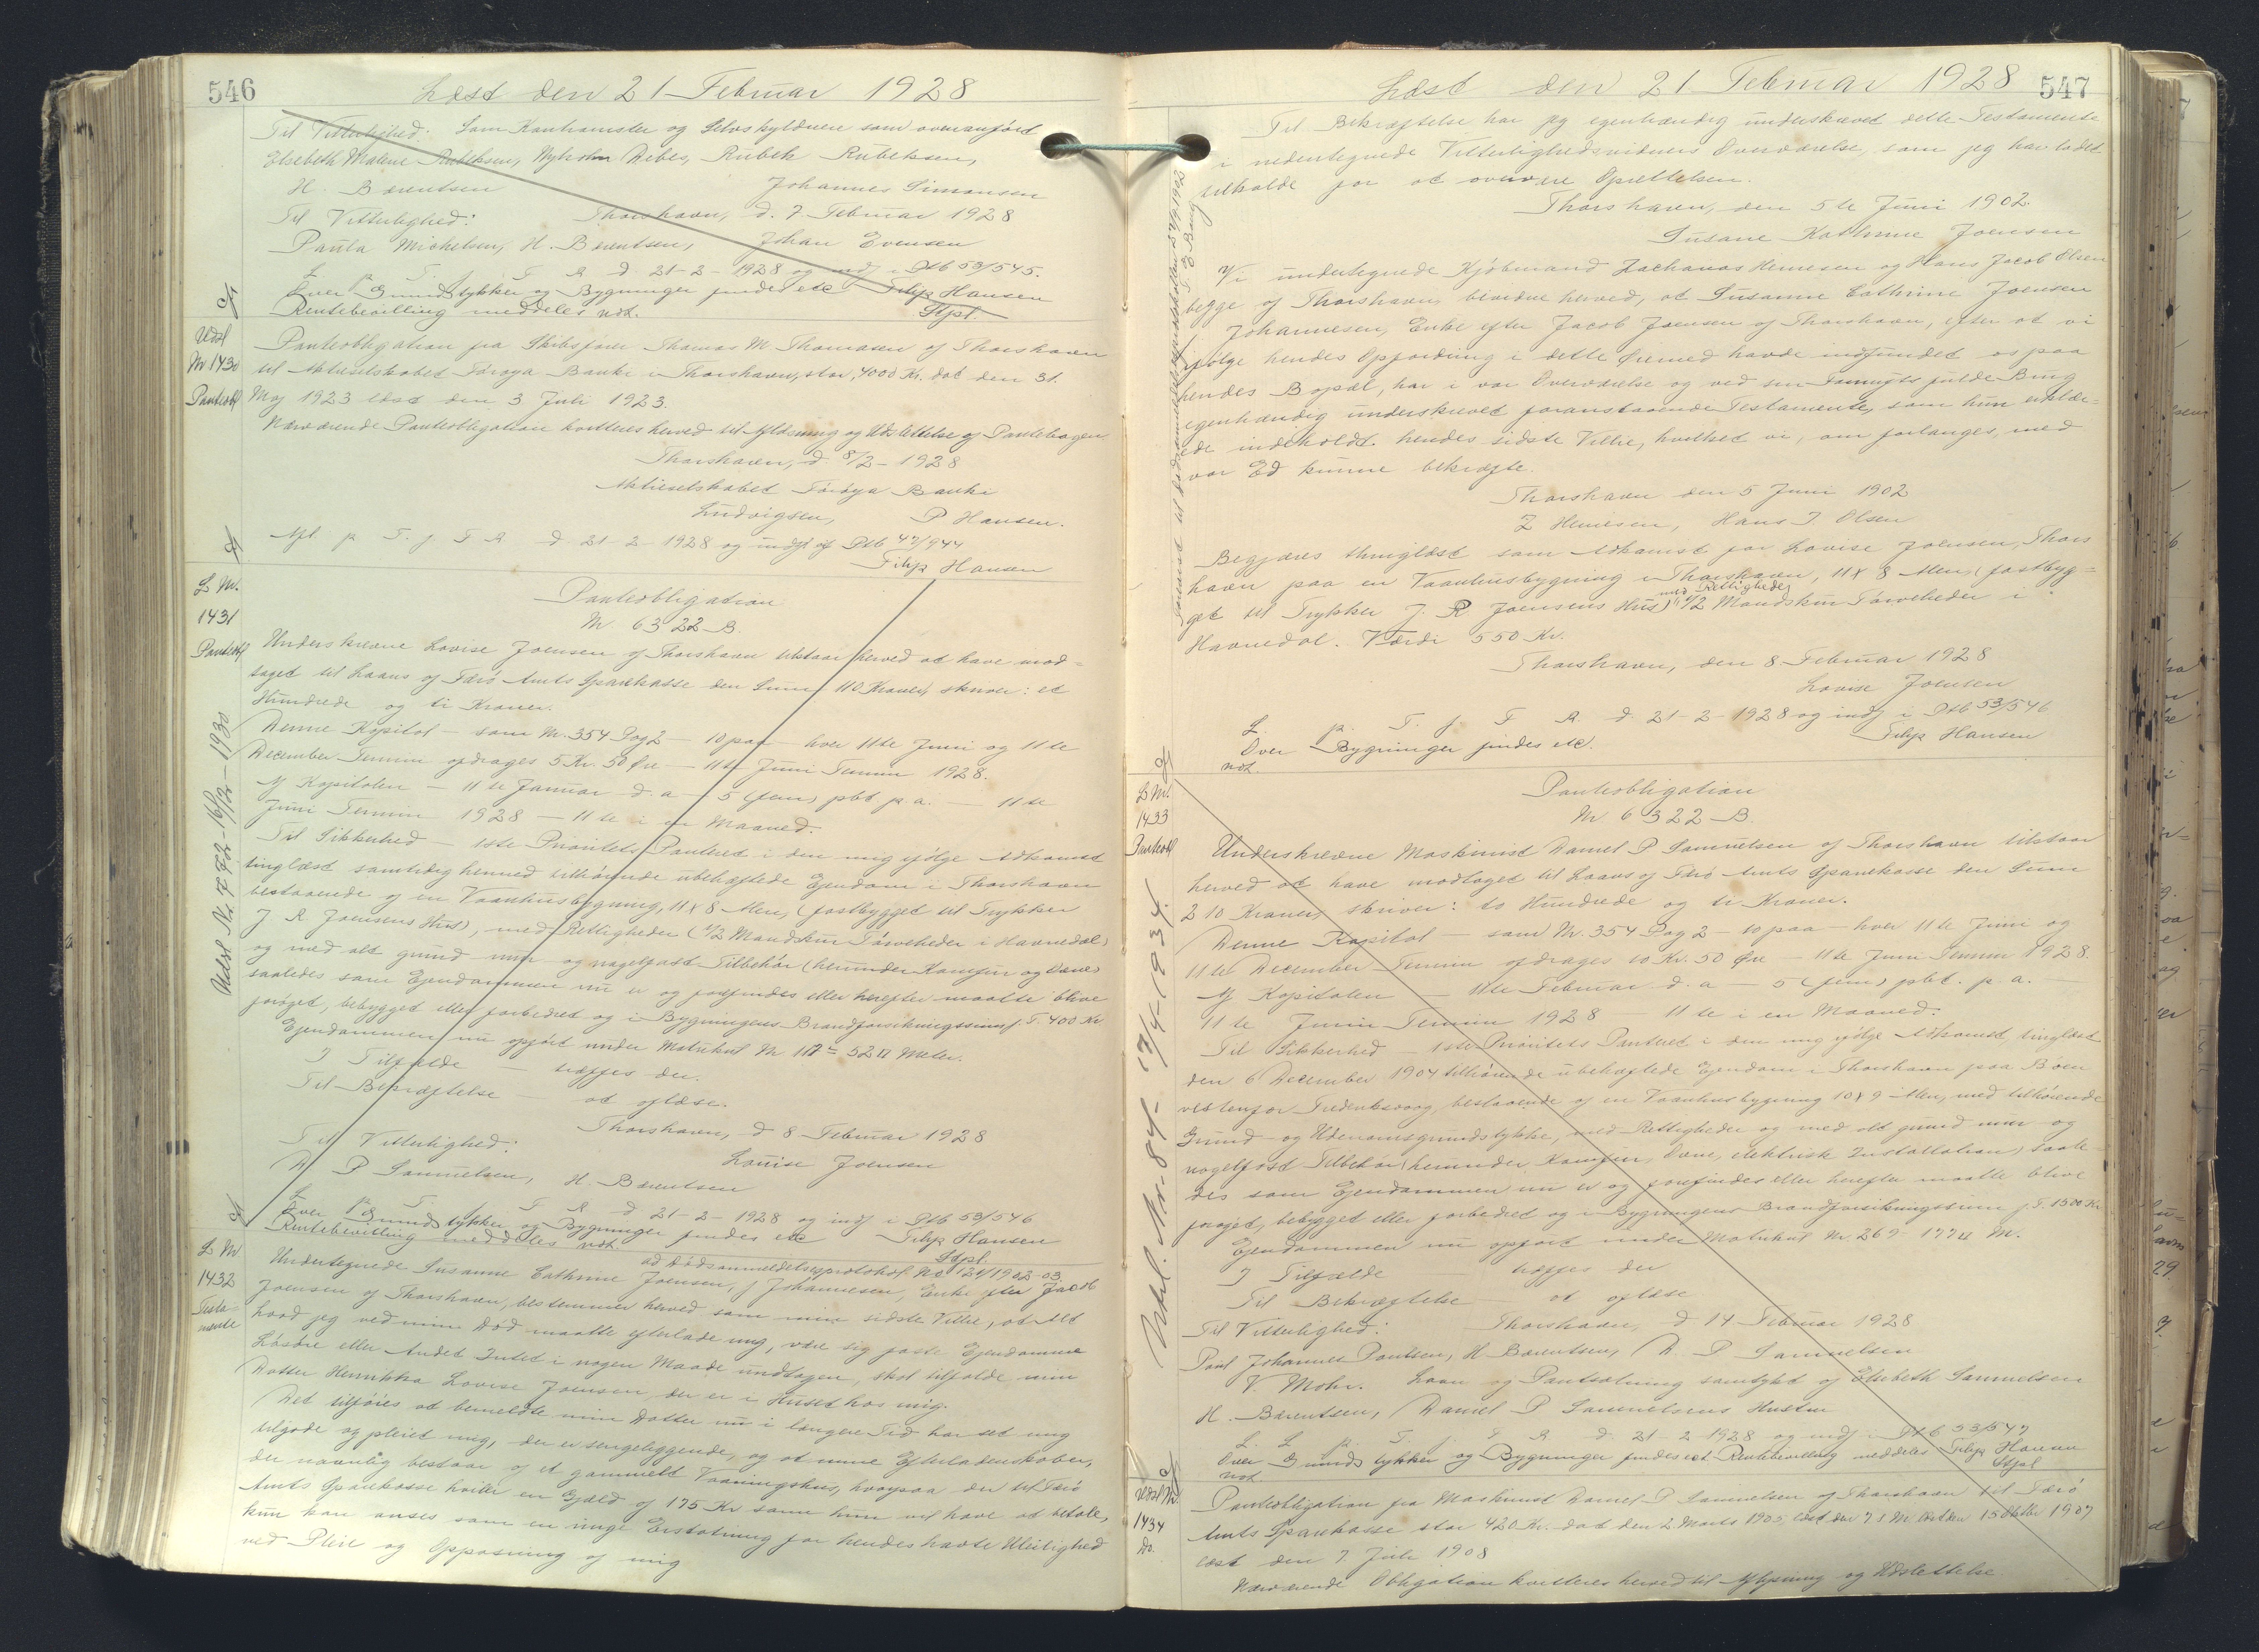 546
Læst den 21 Februar 1928
Til Vitterlighed: Som Kautionister og Selvskyldnere som ovenanført
Elsebeth Malene Rubeksen, Nyholm Debes, Rubek Rubeksen,
H. Barentsen Johannes Simonsen
Til Vitterlighed: Thorshavn, d. 7 Februar 1928
Paula Michelsen, H. Barentsen, Johan Evensen
L. p. T. f. T. R. d 21-2-1928 og indf i Ptb 53/545.
Over Grundstykker og Bygninger findes etc Filip Hansen
Rentebevilling meddeles ndt. Stpl.
Udsl
Nr 1430
Panteobl
Panteobligation fra Skibsfører Thomas M Thomasen af Thorshavn
til Aktieselskabet Føroya Banki i Thorshavn, stor, 4000 Kr. dat den 31.
Maj 1923 læst den 3 Juli 1923.
Nærværende Panteobligation kvitteres herved til Aflæsning og Udslettelse af Pantebogen
Thorshavn, d 8/2-1928
Aktieselskabet Føroya Banki
Ludvigsen, P Hansen.
Afl. p T. f T R. d 21-2-1928 og indf af Ptb 47/944
Filip Hansen
L Nr.
1431
Panteobl
Panteobligation
Nr 6322 B.
Underskrevne Lovise Joensen af Thorshavn tilstaar herved at have mod=
taget til Laans af Færø Amts Sparekasse den Sum 110 Kroner, skriver: et
Hundrede og ti Kroner.
Denne Kapital — som Nr. 354 Pag 2 — 10 paa — hver 11te Juni og 11te
December Termin afdrages 5 Kr. 50 Øre — 11te Juni Termin 1928.
Af Kapitalen — 11te Januar d. a — 5 (fem) pbt p. a. — 11te
Juni Termin 1928 — 11te i en Maaned.
Til Sikkerhed — 1ste Prioritets Panteret i den mig ifølge Adkomst
tinglæst samtidig hermed tilhørende ubehæftede Ejendom i Thorshavn
bestaaende af en Vaanhusbygning, 11 x 8 Alen, (fastbygget til Trykker
J R Joensens Hus), med Rettigheder (1/2 Mandskur Tørveheder i Havnedal)
og med alt grund mur og nagelfast Tilbehør (herunder Komfur og Ovne)
saaledes som Ejendommen nu er og forefindes eller herefter maatte blive
forøget, bebygget eller forbedret og i Bygningens Brandforsikringssum f. T. 400 Kr
Ejendommen nu opført under Matrikul Nr 117 = 52 □ Meter.
I Tilfælde — træffes der.
Til Bekræftelse — at oplæse.
Thorshavn, d 8 Februar 1928
Til Vitterlighed: Louise Joensen
D P Samuelsen, H. Barentsen
L. p T. f T R d 21-2-1928 og indf i Ptb 53/546
Over Grundstykker og Bygninger findes etc Filip Hansen
Rentebevilling meddeles ndt. Stpl.
Udsl Nr. 1772 - 16/12-1930
L Nr
1432
Testa=
mente
ad Dødsanmeldelsesprotokol No 121/1902-03
Undertegnede Susanne Cathrine Joensen, f Johannesen, Enke efter Jacob
Joensen af Thorshavn, bestemmer herved som min sidste Villie, at Alt
hvad jeg ved min Død maatte efterlade mig, være sig faste Ejendomme
Løsøre eller Andet Intet i nogen Maade undtagen, skal tilfalde min
Datter Henrikka Lovise Joensen, der er i Huset hos mig.
Det tilføies at bemeldte min Datter nu i længere Tid har set mig
tilgode og pleiet mig, der er sengeliggende, og at mine Efterladenskaber,
der navnlig bestaar af et gammelt Vaaningshus, hvorpaa der til Færø
Amts Sparekasse hviler en Gjæld af 175 Kr som hun vil have at betale,
kun kan anses som en ringe Erstatning for hendes havte Uleilighed
ved Pleie og Oppasning af mig
547
Læst den 21 Februar 1928
Til Bekræftelse har jeg egenhændig underskrevet dette Testamente
i nedentegnede Vitterlighedsvidners Overværelse, som jeg har ladet
tilkalde for at overvære Oprettelsen.
Thorshavn, den 5te Juni 1902.
Susane Kathrine Joensen
Vi undertegnede Kjøbmand Zachanas Heinesen og Hans Jacob Olsen
begge af Thorshavn, bevidne herved, at Susanne Cathrine Joensen
f Johannesen, Enke efter Jacob Joensen af Thorshavn, efter at vi
ifølge hendes Opfordring i dette Øiemed havde indfundet os paa
hendes Bopæl, har i vor Overværelse og ved sin Fornufts fulde Brug
egenhændig underskrevet foranstaaende Testamente, som hun erklær=
ede indeholdt hendes sidste Villie, hvilket vi, om forlanges, med
vor Ed kunne bekræfte.
Thorshavn den 5 Juni 1902
Z Heinesen, Hans J Olsen
Begjæres thinglæst som Adkomst for Lovise Joensen, Thors
havn paa en Vaanhusbygning i Thorshavn, 11 x 8 Alen, (fastbyg=
get til Trykker J. R Joensens Hus) med Rettigheder 1/2 Mandskur Tørveheder i
Havnedal. Værdi 550 Kr.
Thorshavn, den 8 Februar 1928
Lovise Joensen
L. p. T. f. T R. d. 21-2-1928 og indf i Ptb 53/546
Over Bygninger findes etc. Filip Hansen
ndt.
L Nr.
1433
Panteobl
Panteobligation
Nr 6322 B.
Underskrevne Maskinist Daniel P Samuelsen af Thorshavn tilstaar
herved at have modtaget til Laans af Færø Amts Sparekasse den Sum
210 Kroner, skriver: to Hundrede og ti Kroner.
Denne Kapital — som Nr. 354 Pag 2 — 10 paa — hver 11te Juni og
11te December Termin afdrages 10 Kr. 50 Øre — 11te Juni Termin 1928.
Af Kapitalen — 11te Februar d. a — 5 (fem) pbt. p. a. —
11te Juni Termin 1928 — 11te i en Maaned.
Til Sikkerhed — 1ste Prioritets Panteret i den mig ifølge Adkomst, tinglæst
den 6 December 1904 tilhørende ubehæftede Ejendom i Thorshavn paa Bøen
vestenfor Frederiksvaag, bestaaende af en Vaanhusbygning 10 x 9 Alen, med tilhørende
Grund- og Udenomsgrundstykke, med Rettigheder og med alt grund mur og
nagelfast Tilbehør (herunder Komfur, Ovne, elektrisk Installation) saale
des som Ejendommen nu er og forefindes eller herefter maatte blive
forøget, bebygget eller forbedret og i Bygningens Brandforsikringssum f. T. 1500 Kr
Ejendommen nu opført under Matrikul Nr. 269 - 177 □ M.
I Tilfælde — træffes der
Til Bekræftelse — at oplæse
Til Vitterlighed: Thorshavn, d 14 Februar 1928
Poul Johannes Poulsen, H Barentsen, D. P Samuelsen
V. Mohr. Laan og Pantsætning samtykt af Elsebeth Samuelsen
H. Barentsen, Daniel P Samuelsens Hustru
L. p. T. f. T R. d. 21 2 1928 og indf i Ptb 53/547
Over Grundstykker og Bygninger findes etc. Rentebevilling meddeles Filip Hansen
ndt Stpl
Udsl. Nr. 84 - 17/4-1934.
Udsl Nr.
1434
Do.
Panteobligation fra Maskinist Daniel P Samuelsen af Thorshavn til Færø
Amts Sparekasse stor 420 Kr. dat den 2. Marts 1905 læst den 7 s M. læst den 15 Oktbr 1907
læst den 7. Juli 1908
Nærværende Obligation kvitteres herved til Aflysning og Udslettelse.